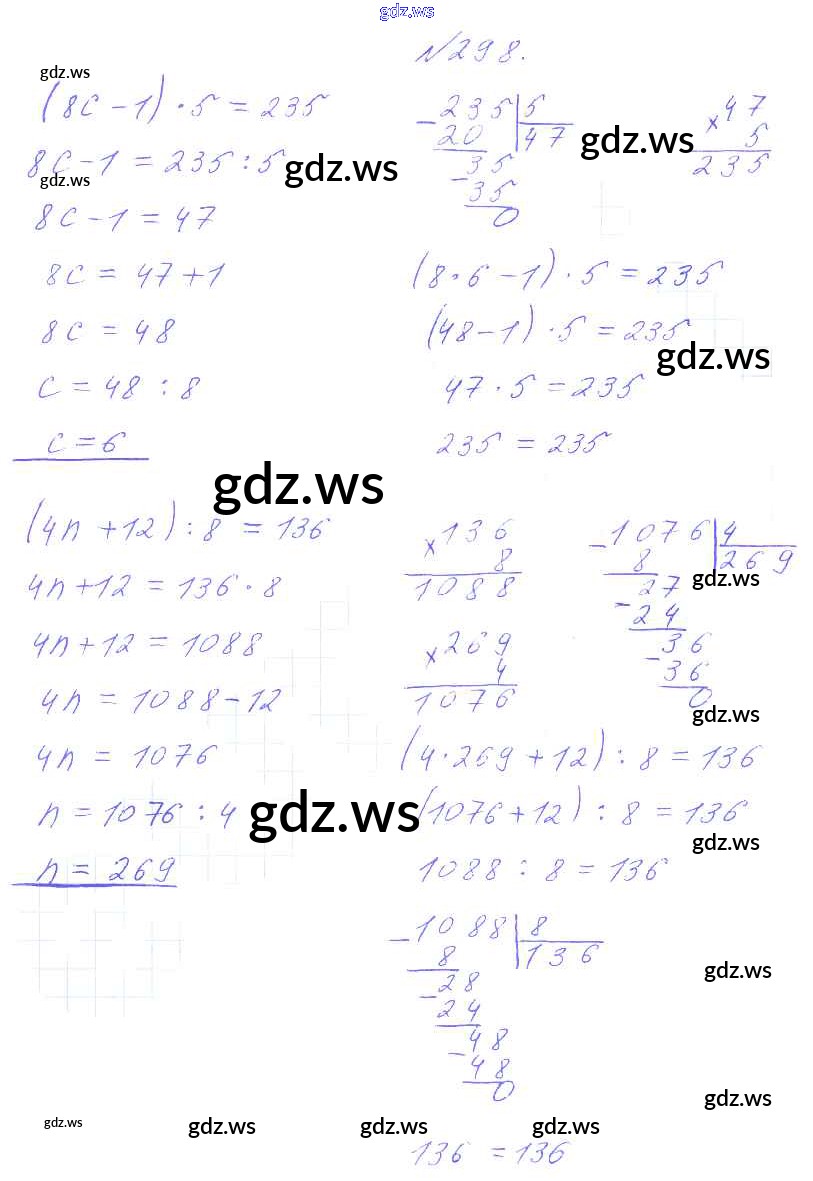 gdz.ws
№298.
gdz.ws
(8c - 1) · 5 = 235
8c - 1 = 235 : 5
gdz.ws
gdz.ws
8c - 1 = 47
8c = 47 + 1
8c = 48
c = 48 : 8
c = 6
- 235 | 5
20 | 47
35
- 35
0
gdz.ws
× 47
5
235
(8 · 6 - 1) · 5 = 235
(48 - 1) · 5 = 235
gdz.ws
47 · 5 = 235
235 = 235
gdz.ws
(4n + 12) : 8 = 136
4n + 12 = 136 · 8
4n + 12 = 1088
4n = 1088 - 12
4n = 1076
n = 1076 : 4
gdz.ws
n = 269
× 136
8
1088
× 269
4
1076
- 1076 | 4
8 | 269
gdz.ws
27
- 24
36
- 36
0
gdz.ws
(4 · 269 + 12) : 8 = 136
(1076 + 12) : 8 = 136
gdz.ws
1088 : 8 = 136
- 1088 | 8
8 | 136
28
- 24
48
- 48
0
gdz.ws
gdz.ws
gdz.ws
gdz.ws
gdz.ws
gdz.ws
136 = 136